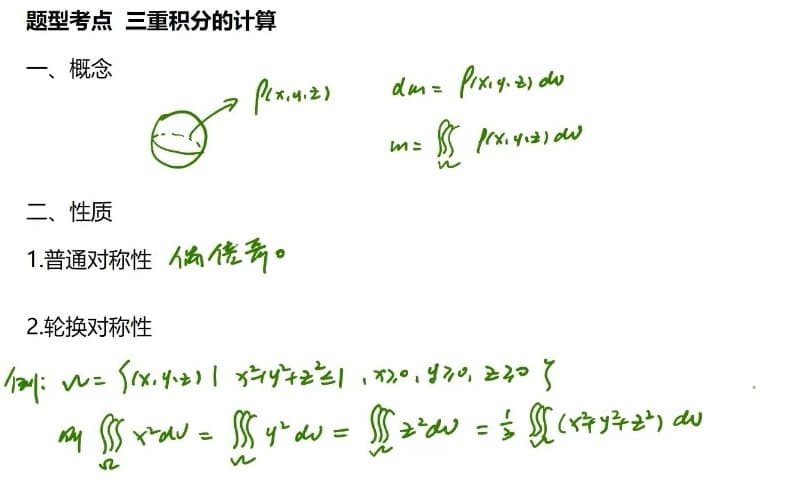 题型考点 三重积分的计算
一、概念
ρ(x,y,z) dm = ρ(x,y,z) dv
m = ∭Ω ρ(x,y,z) dv
二、性质
1.普通对称性 偶倍奇。
2.轮换对称性
例: Ω = {(x,y,z) | x²+y²+z²≤1, x≥0, y≥0, z≥0}
则 ∭Ω x²dv = ∭Ω y²dv = ∭Ω z²dv = 1/3 ∭Ω (x²+y²+z²) dv